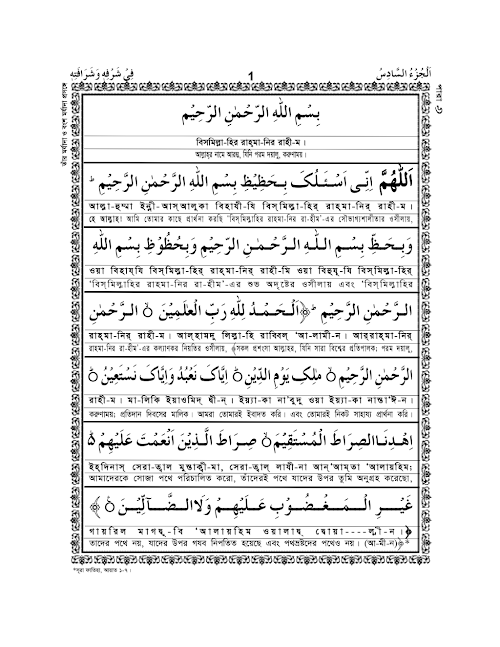 اَلْجُزْءُ السَّادِسُ 1 فِيْ شَرْفِهٖ وَشَرَافَتِهٖ
পারা ৬
তাঁর মর্যাদা ও বংশ মর্যাদা প্রসঙ্গে
بِسْمِ اللهِ الرَّحْمٰنِ الرَّحِيْمِ
বিসমিল্লা-হির রাহ্‌মা-নির রাহী-ম।
আল্লাহ্‌র নামে আরম্ভ, যিনি পরম দয়ালু, করুণাময়।
اَللّٰهُمَّ اِنِّى اَسْئَلُكَ بِحَظِيْظِ بِسْمِ اللهِ الرَّحْمٰنِ الرَّحِيْمِ
আল্লা-হুম্মা ইন্নী-আস্‌আলুকা বিহাযী-যি বিস্‌মিল্লা-হির্ রাহ্‌মা-নির্ রাহী-ম।
হে আল্লাহ! আমি তোমার কাছে প্রার্থনা করছি 'বিস্‌মিল্লাহির রাহমা-নির রা-হীম'-এর সৌভাগ্যশালীতার ওসীলায়,
وَبِحَظِّ بِسْمِ اللهِ الرَّحْمٰنِ الرَّحِيْمِ وَبِحُظُوْظِ بِسْمِ اللهِ
ওয়া বিহায্‌যি বিস্‌মিল্লা-হির্ রাহ্‌মা-নির্ রাহী-মি ওয়া বিহুযূ-যি বিস্‌মিল্লা-হির্
'বিস্‌মিল্লাহির রাহমা-নির রা-হীম'-এর শুভ অদৃষ্টের ওসীলায় এবং 'বিস্‌মিল্লাহির
الرَّحْمٰنِ الرَّحِيْمِ ﴿اَلْحَمْدُ لِلّٰهِ رَبِّ الْعٰلَمِيْنَ ۝ الرَّحْمٰنِ
রাহ্‌মা-নির্ রাহী-ম। আল্‌হাম্‌দু লিল্লা-হি রাব্বিল 'আ-লামী-ন। আর্‌রাহ্‌মা-নির্
রাহমা-নির রা-হীম'-এর কল্যাণকর নিয়তির ওসীলায়, ﴾সকল প্রশংসা আল্লাহর, যিনি সারা বিশ্বের প্রতিপালক; পরম দয়ালু,
الرَّحْمٰنِ الرَّحِيْمِ ۝ مٰلِكِ يَوْمِ الدِّيْنِ ۝ اِيَّاكَ نَعْبُدُ وَاِيَّاكَ نَسْتَعِيْنُ ۝
রাহী-ম। মা-লিকি ইয়াওমিদ্ দ্বী-ন। ইয়্যা-কা না'বুদু ওয়া ইয়্যা-কা নাস্তা'ঈ-ন।
করুণাময়; প্রতিদান দিবসের মালিক। আমরা তোমারই ইবাদত করি। এবং তোমারই নিকট সাহায্য প্রার্থনা করি।
اِهْدِنَا الصِّرَاطَ الْمُسْتَقِيْمَ ۝ صِرَاطَ الَّذِيْنَ اَنْعَمْتَ عَلَيْهِمْ ۝
ইহ্‌দিনাস্ সেরা-ত্বাল্ মুস্তাক্বী-মা, সেরা-ত্বাল্ লাযী-না আন্'আম্‌তা 'আলায়হিম;
আমাদেরকে সোজা পথে পরিচালিত করো, তাঁদেরই পথে যাদের উপর তুমি অনুগ্রহ করেছো,
غَيْرِ الْمَغْضُوْبِ عَلَيْهِمْ وَلَا الضَّآلِّيْنَ ۝ ﴾
গায়রিল মাগদ্বূ-বি 'আলায়হিম ওয়ালাদ্ব দ্বোয়া----ল্লী-ন।﴿
তাদের পথে নয়, যাদের উপর গযব নিপতিত হয়েছে এবং পথভ্রষ্টদের পথেও নয়। (আ-মী-ন)﴿*
*সূরা ফাতিহা, আয়াত ১-৭।